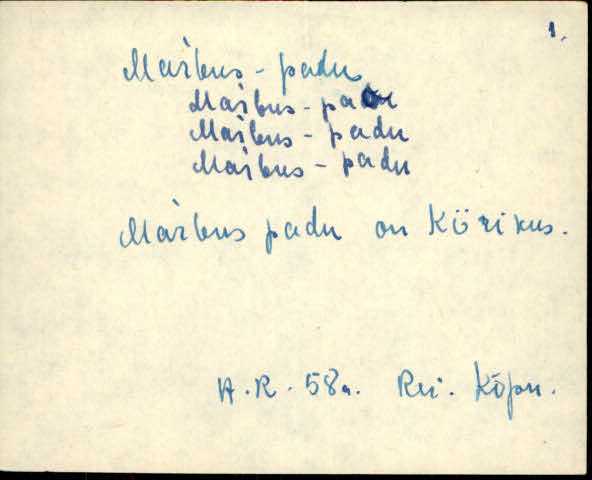 1.
Maìbus - padu
Maìbus - padu
Maìbus - padu
Maìbus - padu
Maìbus padu on Körikus.
H.R. 58a. Rei. Kõpu.